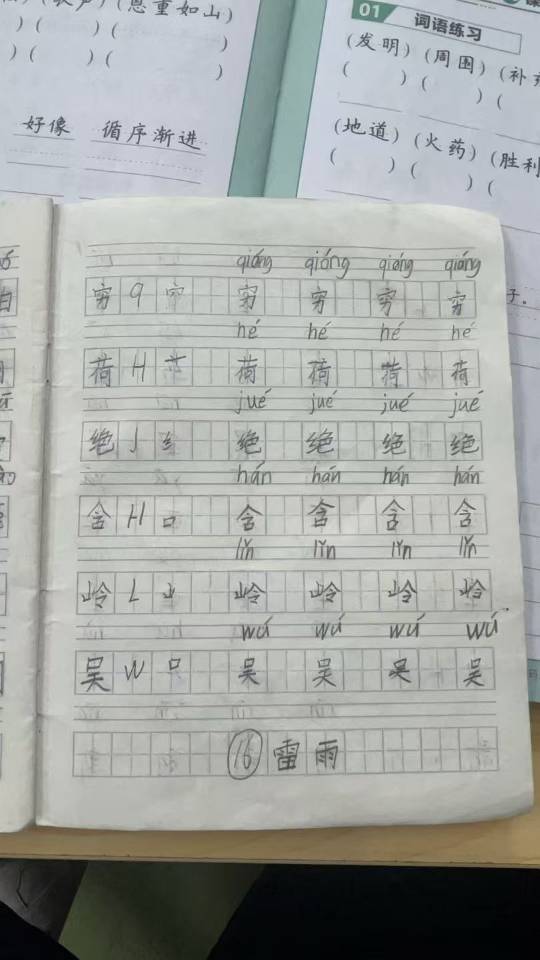 (恩重如山)
( ) ( )
) ( )
好像 循序渐进
01 词语练习
(发明) (周围) (补充
( ) ( ) (
(地道) (火药) (胜利
( ) ( ) (
子。
qióng qióng qióng qióng
穷 q 穴 穷 穷 穷 穷
hé hé hé hé
荷 H 艹 荷 荷 荷 荷
jué jué jué jué
绝 J 纟 绝 绝 绝 绝
hán hán hán hán
含 H 口 含 含 含 含
lǐn lǐn lǐn lǐn
岭 L 山 岭 岭 岭 岭
wú wú wú wú
吴 W 口 吴 吴 吴 吴
16 雷雨